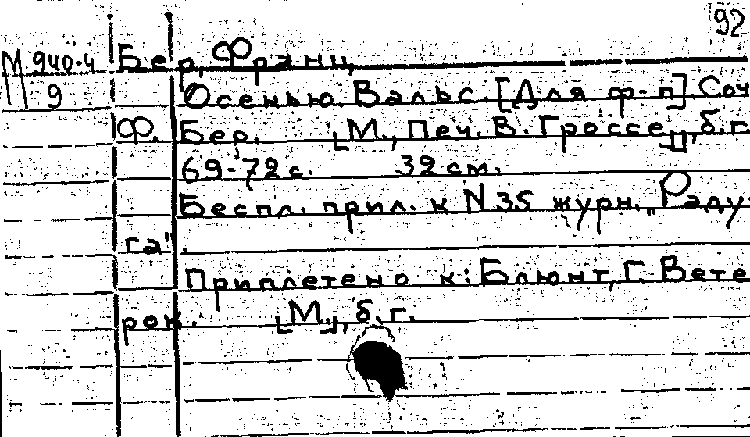 92
М 940-4 Бер, Франц,
9 Осенью. Вальс. [Для ф-п] Соч
Ф. Бер. [М., Печ. В. Гроссе], б.г.
69-72 с. 32 см.
Беспл. прил. к N 35 журн. „Раду-
га".
Приплетено к: Блюмт, Г. Вете
рок. [М.], б.г.